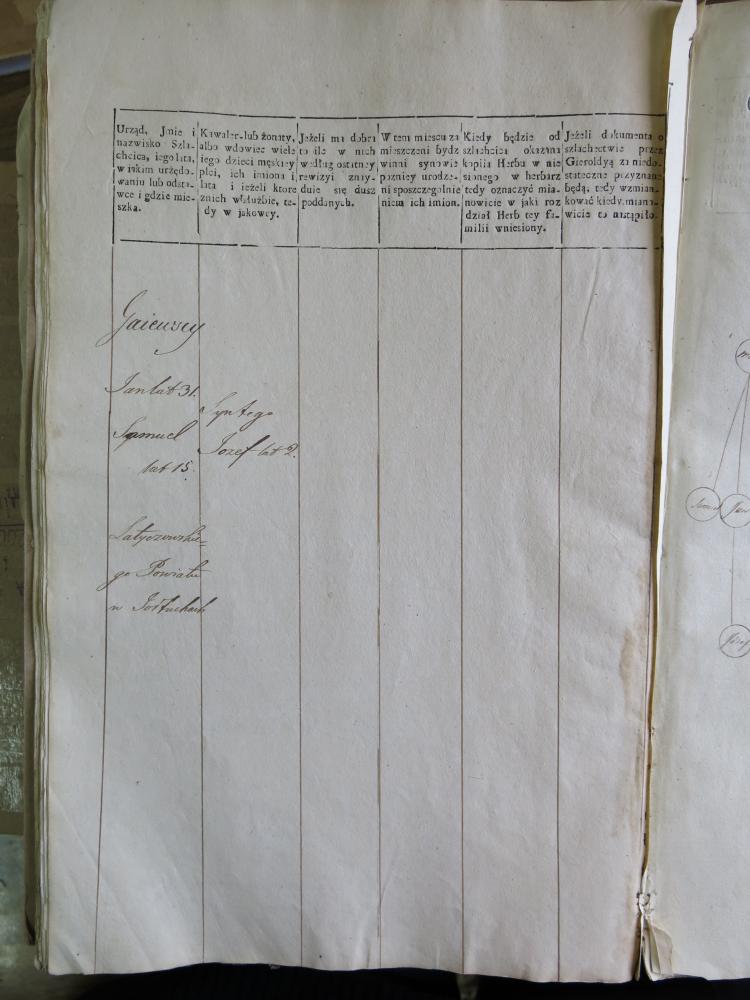 Urząd, Jmie i
nazwisko Szla-
chcica, iego lita,
w iakim urzędo-
waniu lub odsta-
wce i gdzie mie-
szka.
Kawaler lub żonaty,
albo wdowiec wiele
iego dzieci męskiey
płci, ich imiona i
lata i ieżeli ktore
z nich w służbie, te-
dy w jakowey.
Jeżeli ma dobra
to ile w nich
według ostatney
rewizyi znay-
duie się dusz
poddanych.
W tem miescu za
mieszczeni bydz
winni synowie
poznicy urodze-
ni sposzczegolnie
niem ich imion.
Kiedy będzie od
szlachcica okazana
kopiia Herbu w nie
sionego w herbarz
tedy oznaczyć mia-
nowicie w jaki roz
dział Herb tey fa-
milii wniesiony.
Jeżeli dokumenta o
szlachectwie przez
Gieroldyą za niedo-
stateczne przyznane
będą, tedy wzmian-
kować kiedy miano-
wicie to nastąpiło.
Gaiewscy
Jan lat 31.
Samuel
lat 15.
Syn tego
Jozef lat 2.
Latyczowskie=
go Powiatu
w Jołtuchach
Jan
Józef